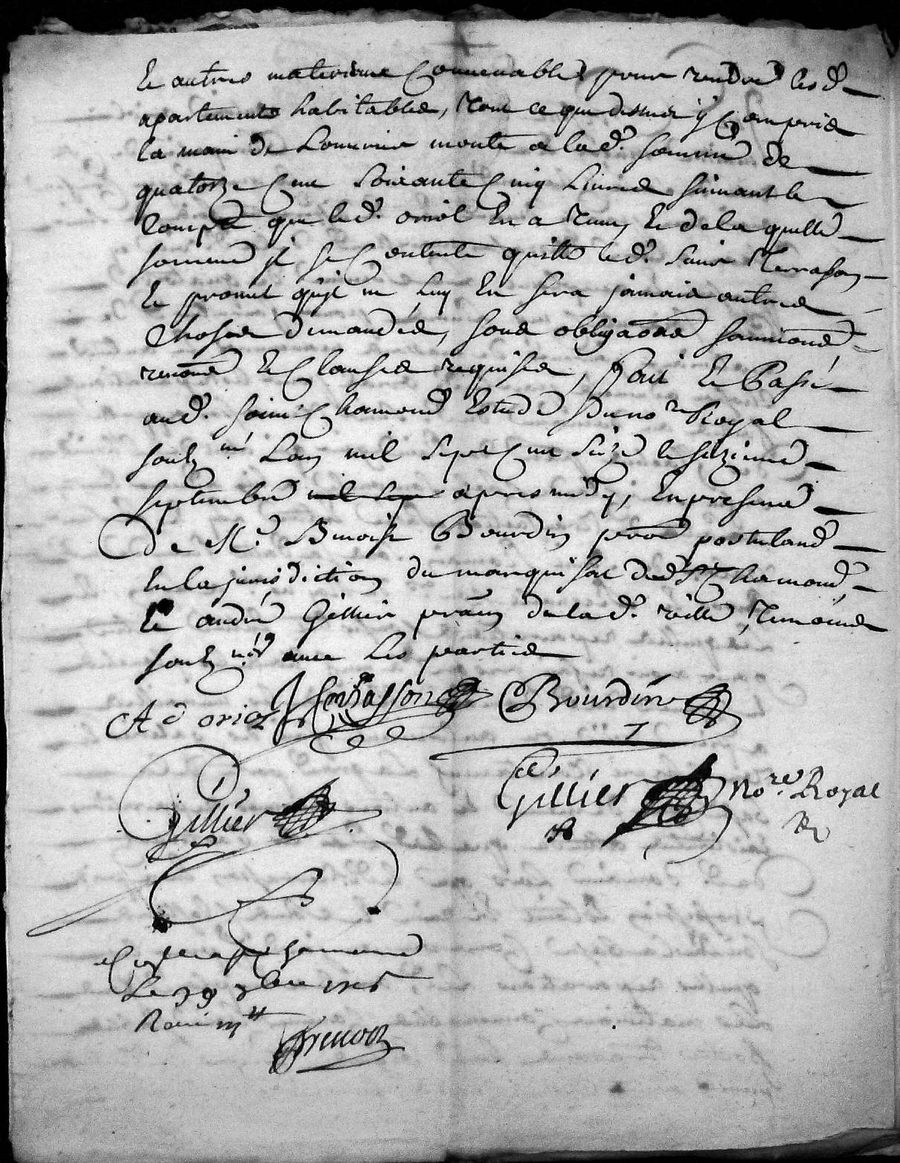 Et autres materiaux Convenables pour rendre lesd.
apartements habitables, Tout ce que dessus y Compris
la main de Louvrier monte a lad. somme de
quatorze Cent soixante Cinq Livres suivant le
Compte que led. oriol En a Tenu, Et de laquelle
somme il se Contente quitte led. sieur Terrasson
Et promet quil ne Luy En sera jamais autres
Choses demandée, sous obligaõns soumiõns
renoñs Et Clauses requises, fait Et Passé
aud. saint Chamond Estude Du nore Royal
soubz né Lan mil sept Cent seize le sezieme
septembre apres midy, En presence
de Me. Benoist Bourdin procr postuland
En la jurisdiction du marquisat dud. St Chamond,
Et andré Gillier pratn de lad. ville, Temoins
soubz nés avec Les parties
A d oriol Terrasson Bourdin
Gillier Gillier Nore. Royal
Conterolle a st chamond
Le 7bre 1716